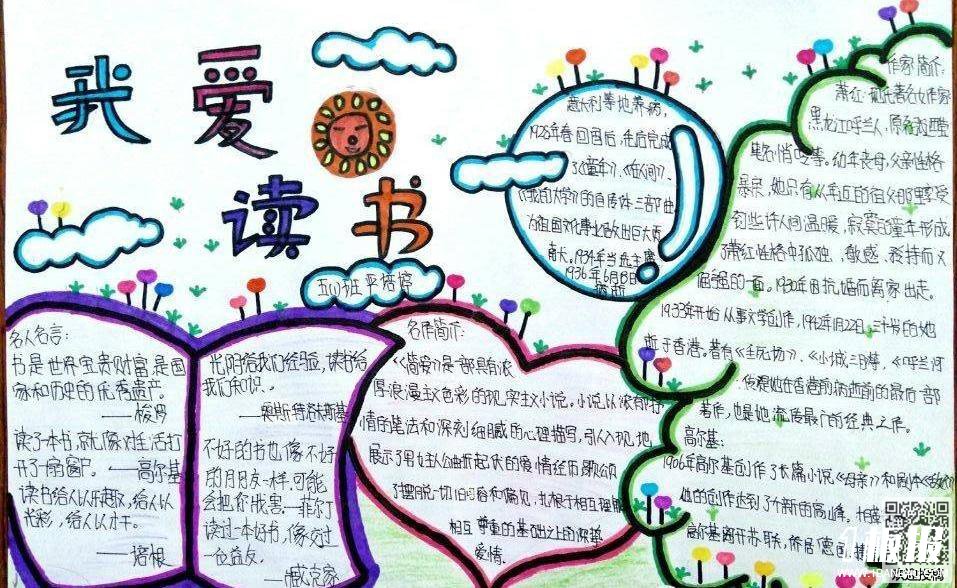 我爱
读书
五(1)班
名人名言:
书是世界宝贵财富,是国
家和历史的优秀遗产。
——梭罗
读了本书,就像对生活打
开了扇窗户。——高尔基
读书给人以乐趣,给人以
光彩,给人以才干。
——培根
光阴给我们经验,读书给
我们知识。
——奥斯特洛夫斯基
不好的书也像不好
的朋友一样,可能
会把你戕害。—菲尔丁
读过一本好书,像交过
一位益友。
——臧克家
名作简介:
《简爱》是一部具有浓
厚浪漫主义色彩的现实主义小说。小说以浓郁抒
情的笔法和深刻细腻的心理描写,引人入现,地
展示了男女主人公曲折起伏的爱情经历歌颂
了摆脱一切旧习俗和偏见,扎根于相互理解
相互尊重的基础之上的深挚
爱情
意大利等地养病,
1925年春回国后,先后完成
了《童年》、《在人间》、
《我的大学》的自传体三部曲
为祖国文化事业做出巨大贡
献。1934年当选主席
1936年6月8日
作家简介:
萧红:现代著名女作家
黑龙江呼兰人,原名
笔名悄吟等。幼年丧母,父亲性格
暴戾,她只有从年近的祖父那里享受
到些许人间温暖,寂寞的童年形成
了萧红性格中孤独、敏感、矜持而又
倔强的一面。1930年因抗婚而离家出走。
1933年开始从事文学创作,1942年1月22日,三十岁的她
逝于香港。著有《生死场》、《小城三月》、《呼兰河
著作,也是她流传最广的经典之作。
高尔基:
1906年高尔基创作了长篇小说《母亲》和剧本《敌人》
他的创作达到了个新的高峰。
高尔基离开苏联,侨居德国